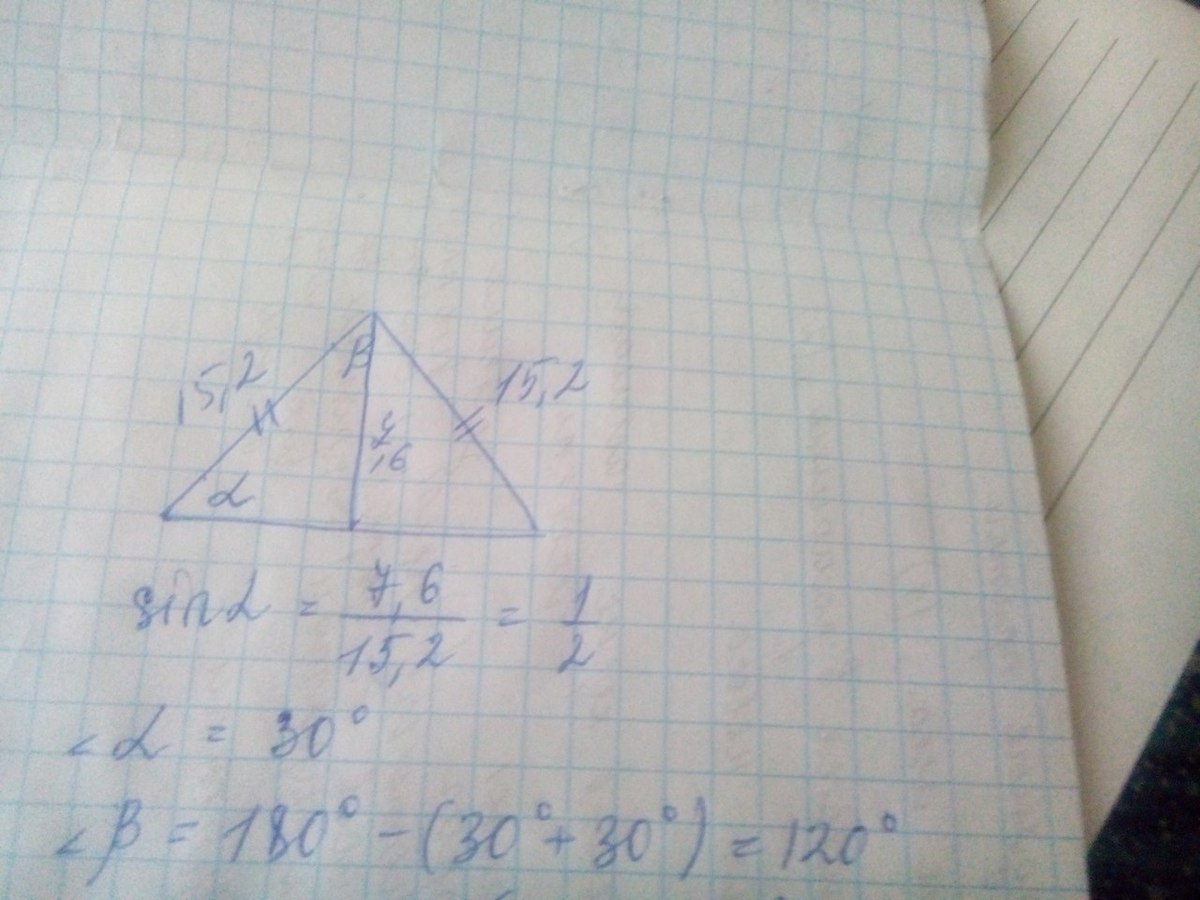 β
15,2
15,2
7,6
α
sin α = 7,6 / 15,2 = 1 / 2
∠α = 30°
∠β = 180° - (30° + 30°) = 120°